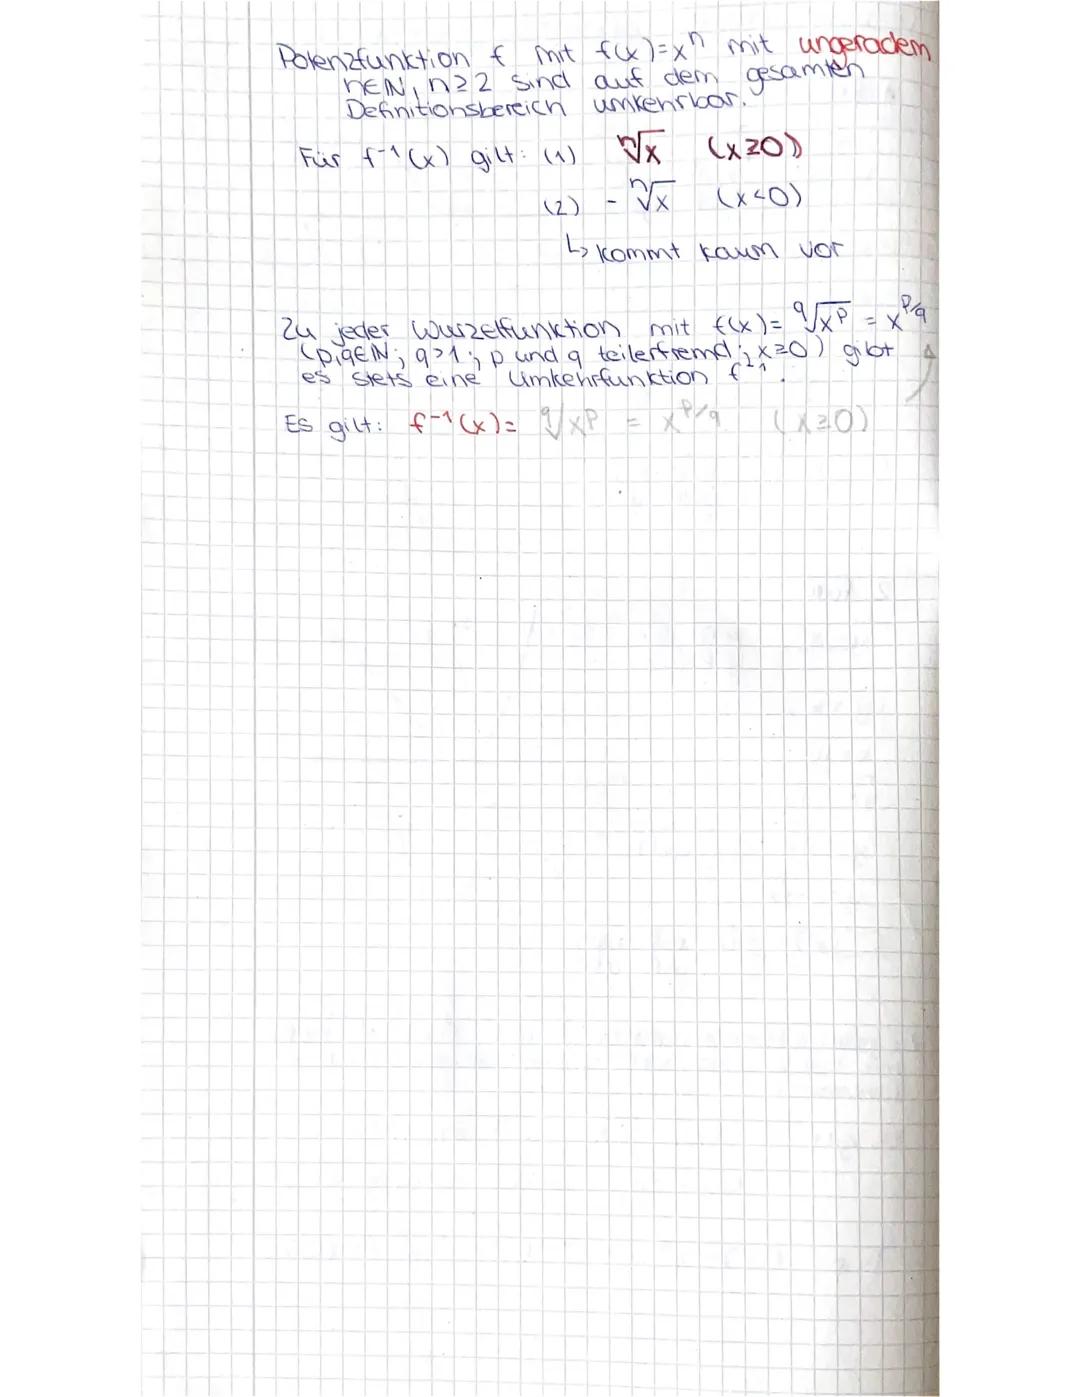 Potenzfunktion f mit f(x)=xⁿ mit ungeradem
n∈ℕ, n≥2 sind auf dem gesamten
Definitionsbereich umkehrbar.
Für f⁻¹(x) gilt: (1) ⁿ√x (x≥0)
(2) - ⁿ√x (x<0)
↳ kommt kaum vor
Zu jeder Wurzelfunktion mit f(x)= q√xᵖ = x^p/q
(p,q∈ℕ; q>1; p und q teilerfremd; x≥0) gibt
es stets eine Umkehrfunktion f⁻¹.
Es gilt: f⁻¹(x)= q√xᵖ = x^p/q (x≥0)